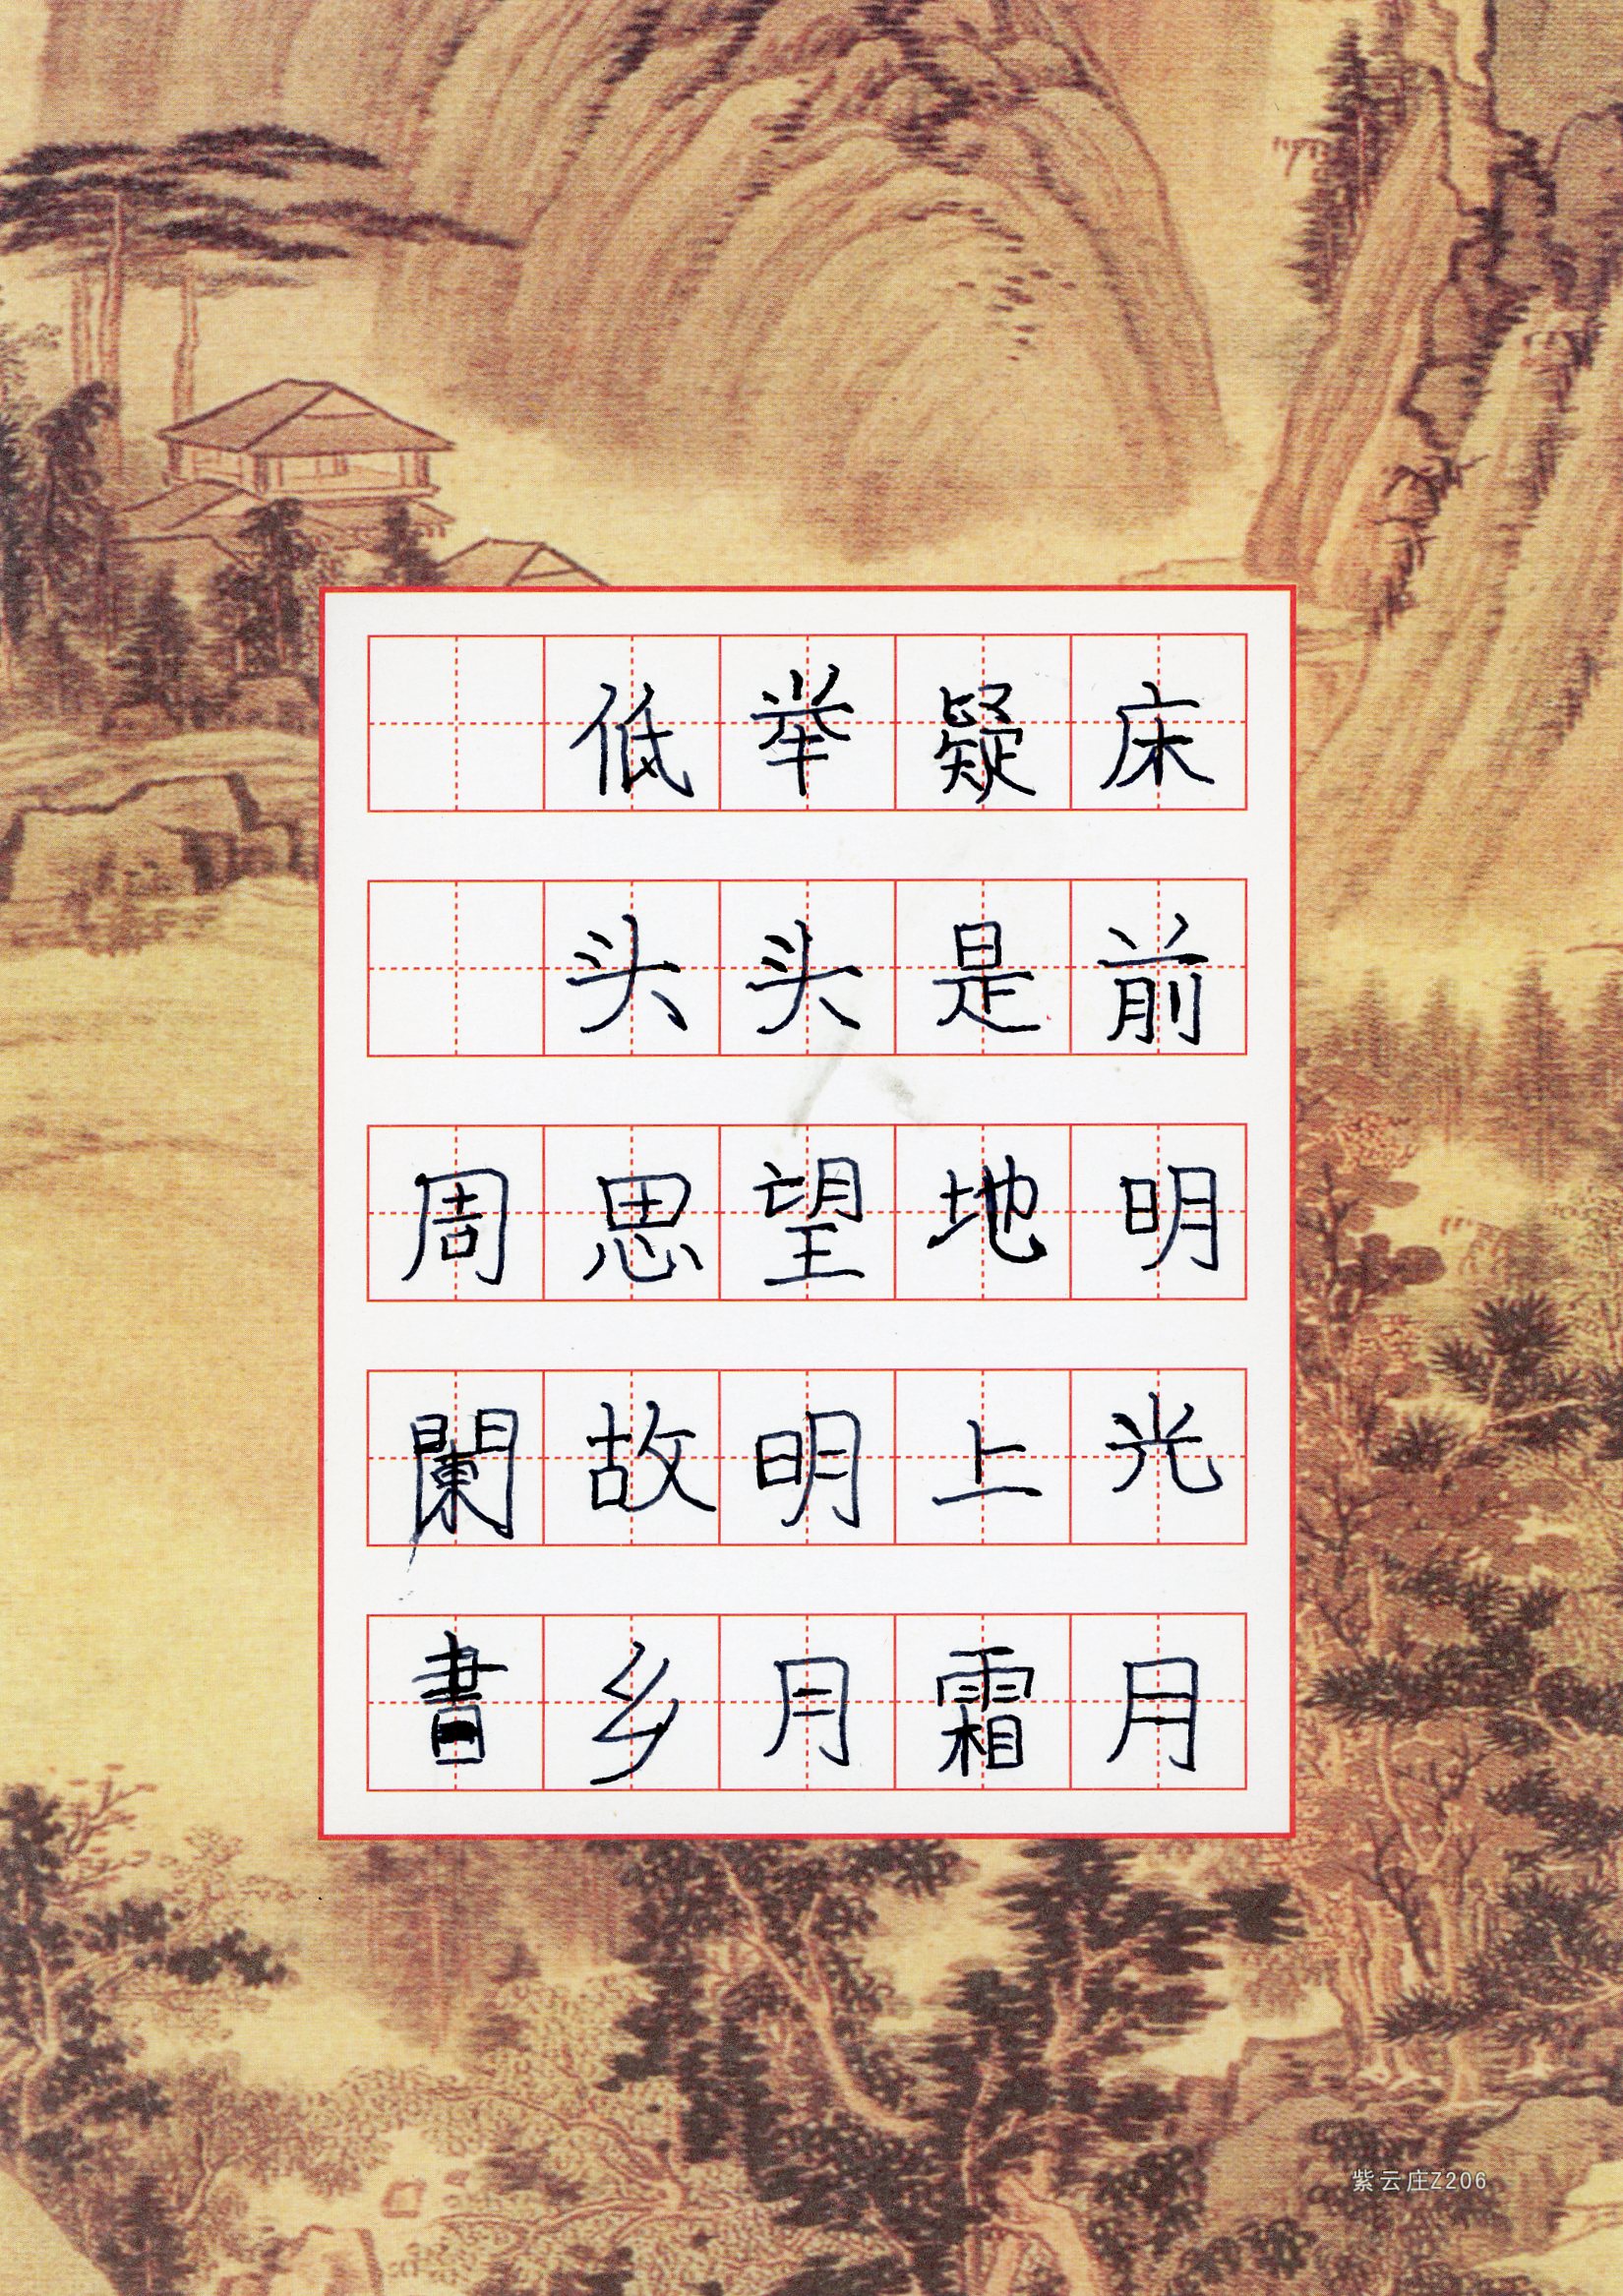 床前明月光
疑是地上霜
举头望明月
低头思故乡
周闌書
紫云庄Z206